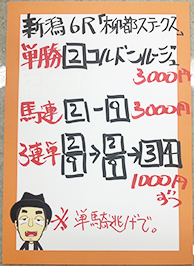 新潟6R「柳都ステークス」
単勝 2 ゴルドンルージュ
3000円
馬連 2-9 3000円
3連単 2/9→2/9→3 4
1000円
ずつ
※単騎逃げで。